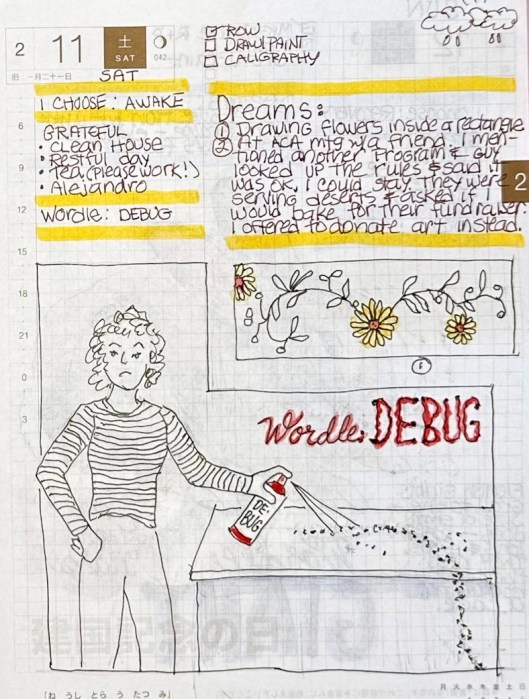 2 11 土 SAT 042
旧 一月二十一日
SAT
ROW
DRAW/PAINT
CALIGRAPHY
I CHOOSE: AWAKE
GRATEFUL
• CLEAN HOUSE
• RESTFUL DAY
• TEA (PLEASE WORK!)
• ALEJANDRO
WORDLE: DEBUG
Dreams:
① Drawing flowers inside a rectangle
② At ACA mtg w/a friend. I men-
tioned another program & guy
looked up the rules & said it
was ok, I could stay. They were
serving deserts & asked if I
would bake for their fundraiser
I offered to donate art instead.
2
6
9
12
15
18
21
0
3
Wordle: DEBUG
DE-
BUG
建国記念の日
「ね うし とら う たつ み」
月 火 水 木 金 土 日